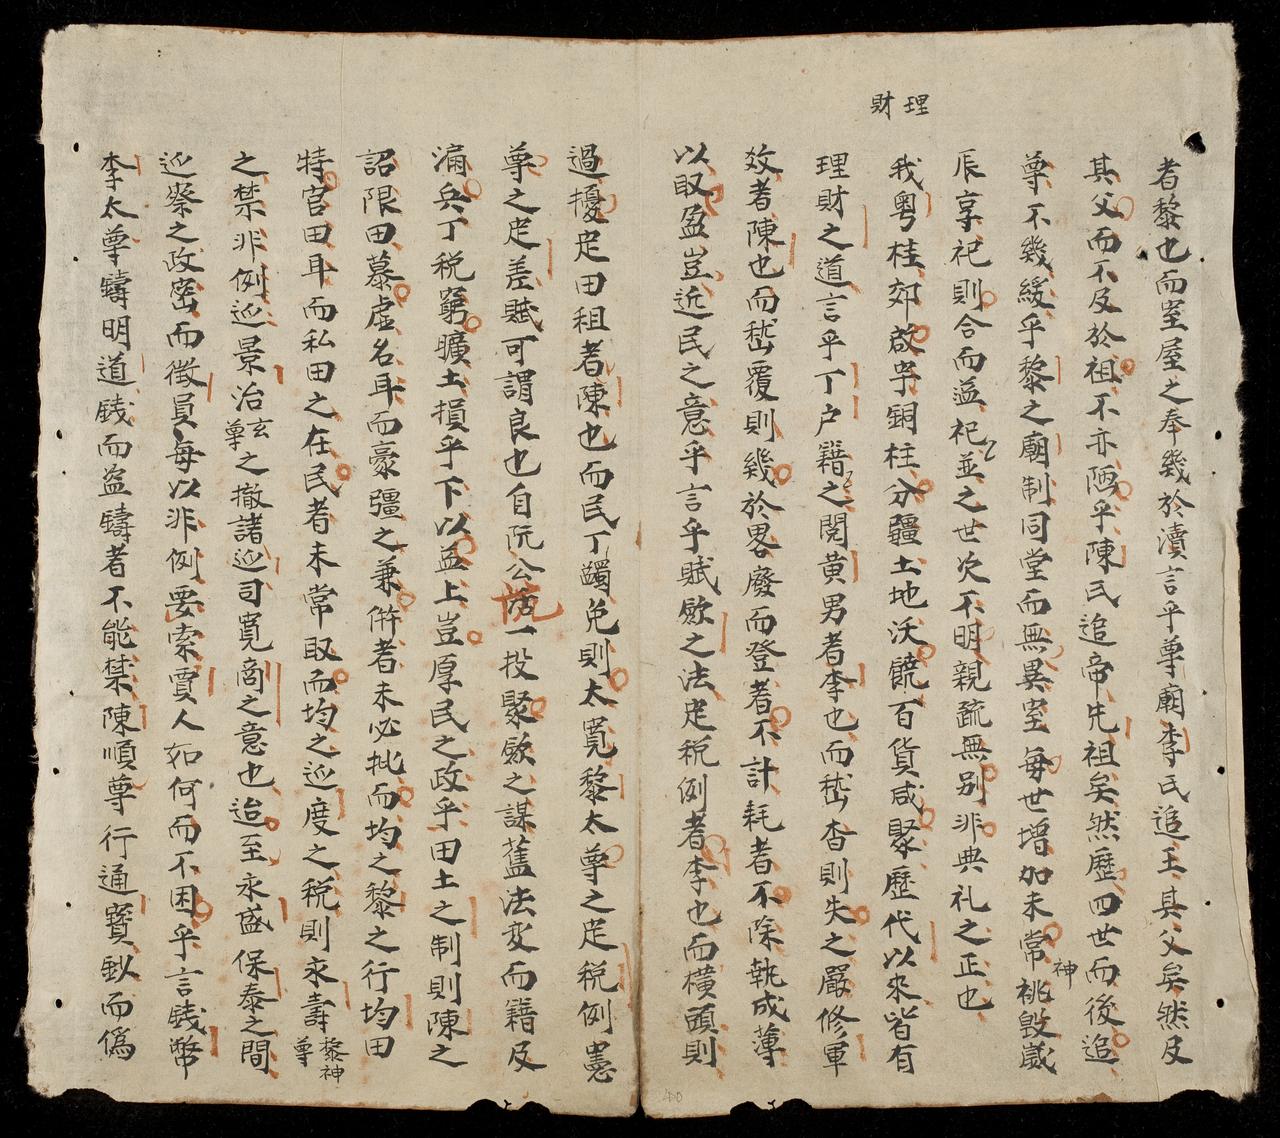 理財
者黎也而室屋之奉幾於瀆言乎尊廟李氏追王其父矣然及
其父而不及於祖不亦陋乎陳氏追帝先祖矣然歷四世而後追
尊不幾緩乎黎之廟制同堂而無異室每世增加未常祧毀盛
神
辰享祀則合而並祀並之世次不明親疏無別非典礼之正也
我粤桂郊啟宇銅柱分疆土地沃饒百貨咸聚歷代以來皆有
理財之道言乎丁户籍之閱黃男者李也而嵆杳則失之嚴修軍
效者陳也而嵆覆則幾於畧廢而登者不計耗者不除執成薄
以取盈豈近民之意乎言乎賦歛之法定税例者李也而橫頭則
過擾定田租者陳也而民丁蠲免則太寬黎太尊之定税例憲
尊之定差賦可謂良也自阮公沆一投聚歛之謀舊法変而籍及
漏兵丁税窮曠土損乎下以益上豈厚民之政乎田土之制則陳之
詔限田慕虛名耳而豪彊之兼併者未必批而均之黎之行均田
特官田耳而私田之在民者未常取而均之廵度之税則永壽黎神尊
之禁非例廵景治玄尊之撤諸廵司寬商之意也迨至永盛保泰之間
廵察之政密而徵員每以非例要索賈人如何而不困乎言錢幣
李太尊鑄明道錢而盗鑄者不能禁陳順尊行通寶鈔而偽